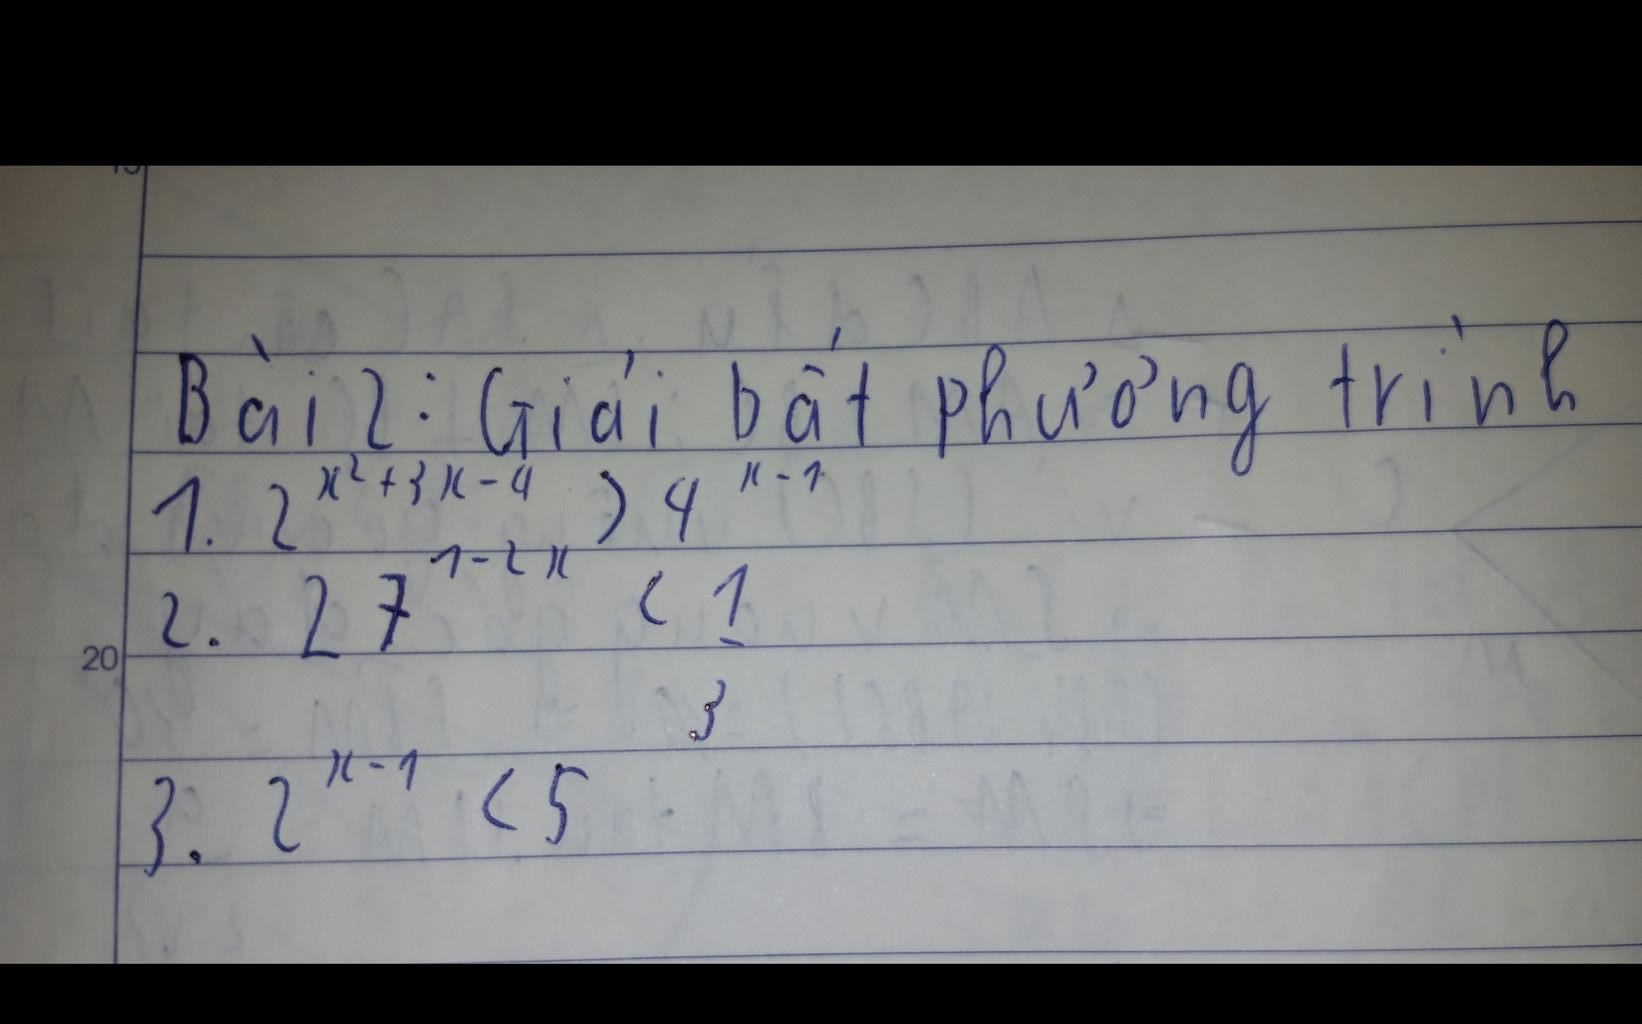 Bài 2: Giải bất phương trình
1. 2^{x²+3x-4} > 4^{x-1}
20
2. 27^{1-2x} < 1/3
3. 2^{x-1} < 5